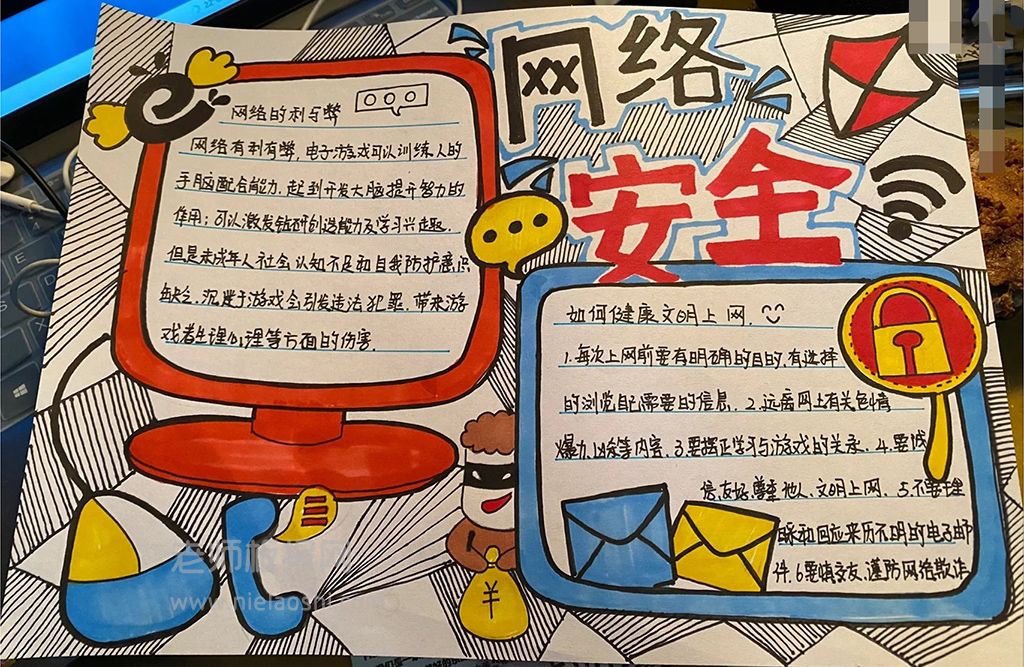 网络
安全
网络的利与弊
网络有利有弊，电子游戏可以训练人的
手脑配合能力，起到开发大脑提升智力的
作用；可以激发钻研创造能力及学习兴趣，
但是未成年人社会认知不足和自我防护意识
缺乏，沉迷于游戏会引发违法犯罪，带来游
戏者生理心理等方面的伤害。
如何健康文明上网。
1.每次上网前要有明确的目的，有选择
的浏览自己需要的信息。2.远离网上有关色情
暴力等内容。3.要摆正学习与游戏的关系。4.要诚
信友好，尊重他人，文明上网。5.不要理
睬和回应来历不明的电子邮
件。6.要慎交友，谨防网络欺诈
¥
老师板报网